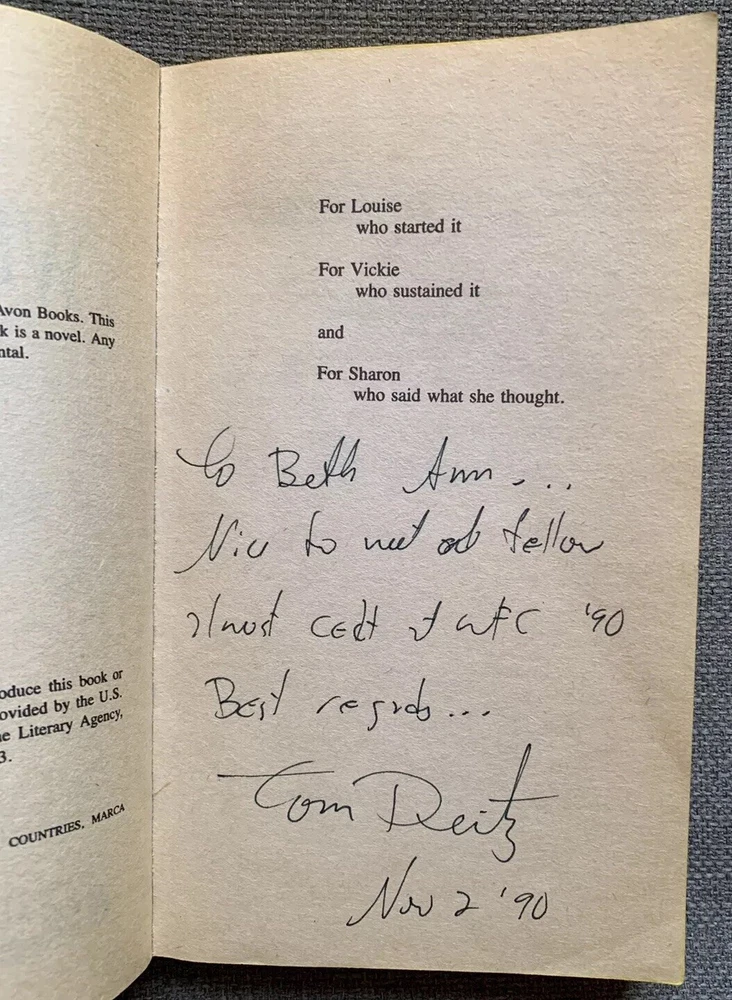 Avon Books. This
k is a novel. Any
ntal.
oduce this book or
ovided by the U.S.
e Literary Agency,
3.
COUNTRIES, MARCA
For Louise
who started it
For Vickie
who sustained it
and
For Sharon
who said what she thought.
To Beth Ann...
Nice to meet fellow
almost at WFC '90
Best regards...
Tom Deitz
Nov 2 '90